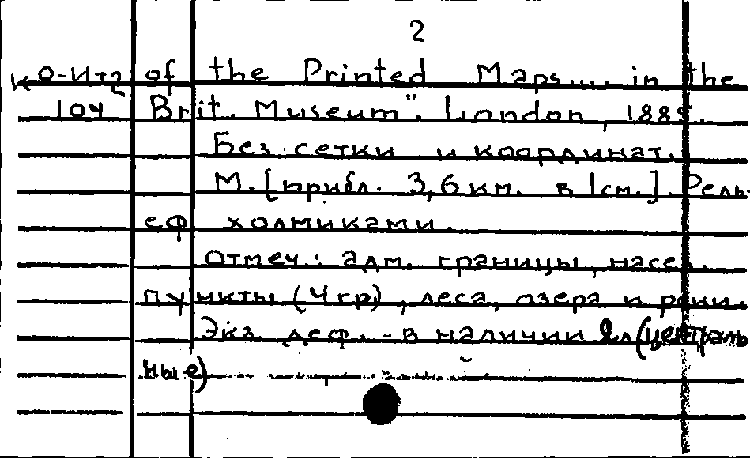 2
К О-Ит2 of the Printed Maps.... in the
104 Brit. Museum". London, 1885.
Без сетки и координат.
М. [прибл. 3,6 км. в 1 см.]. Рель-
еф холмиками.
Отмеч.: адм. границы, насел.
пункты (4 гр), леса, озера и реки.
Экз. деф. - в наличии 2 л (централь
ные)